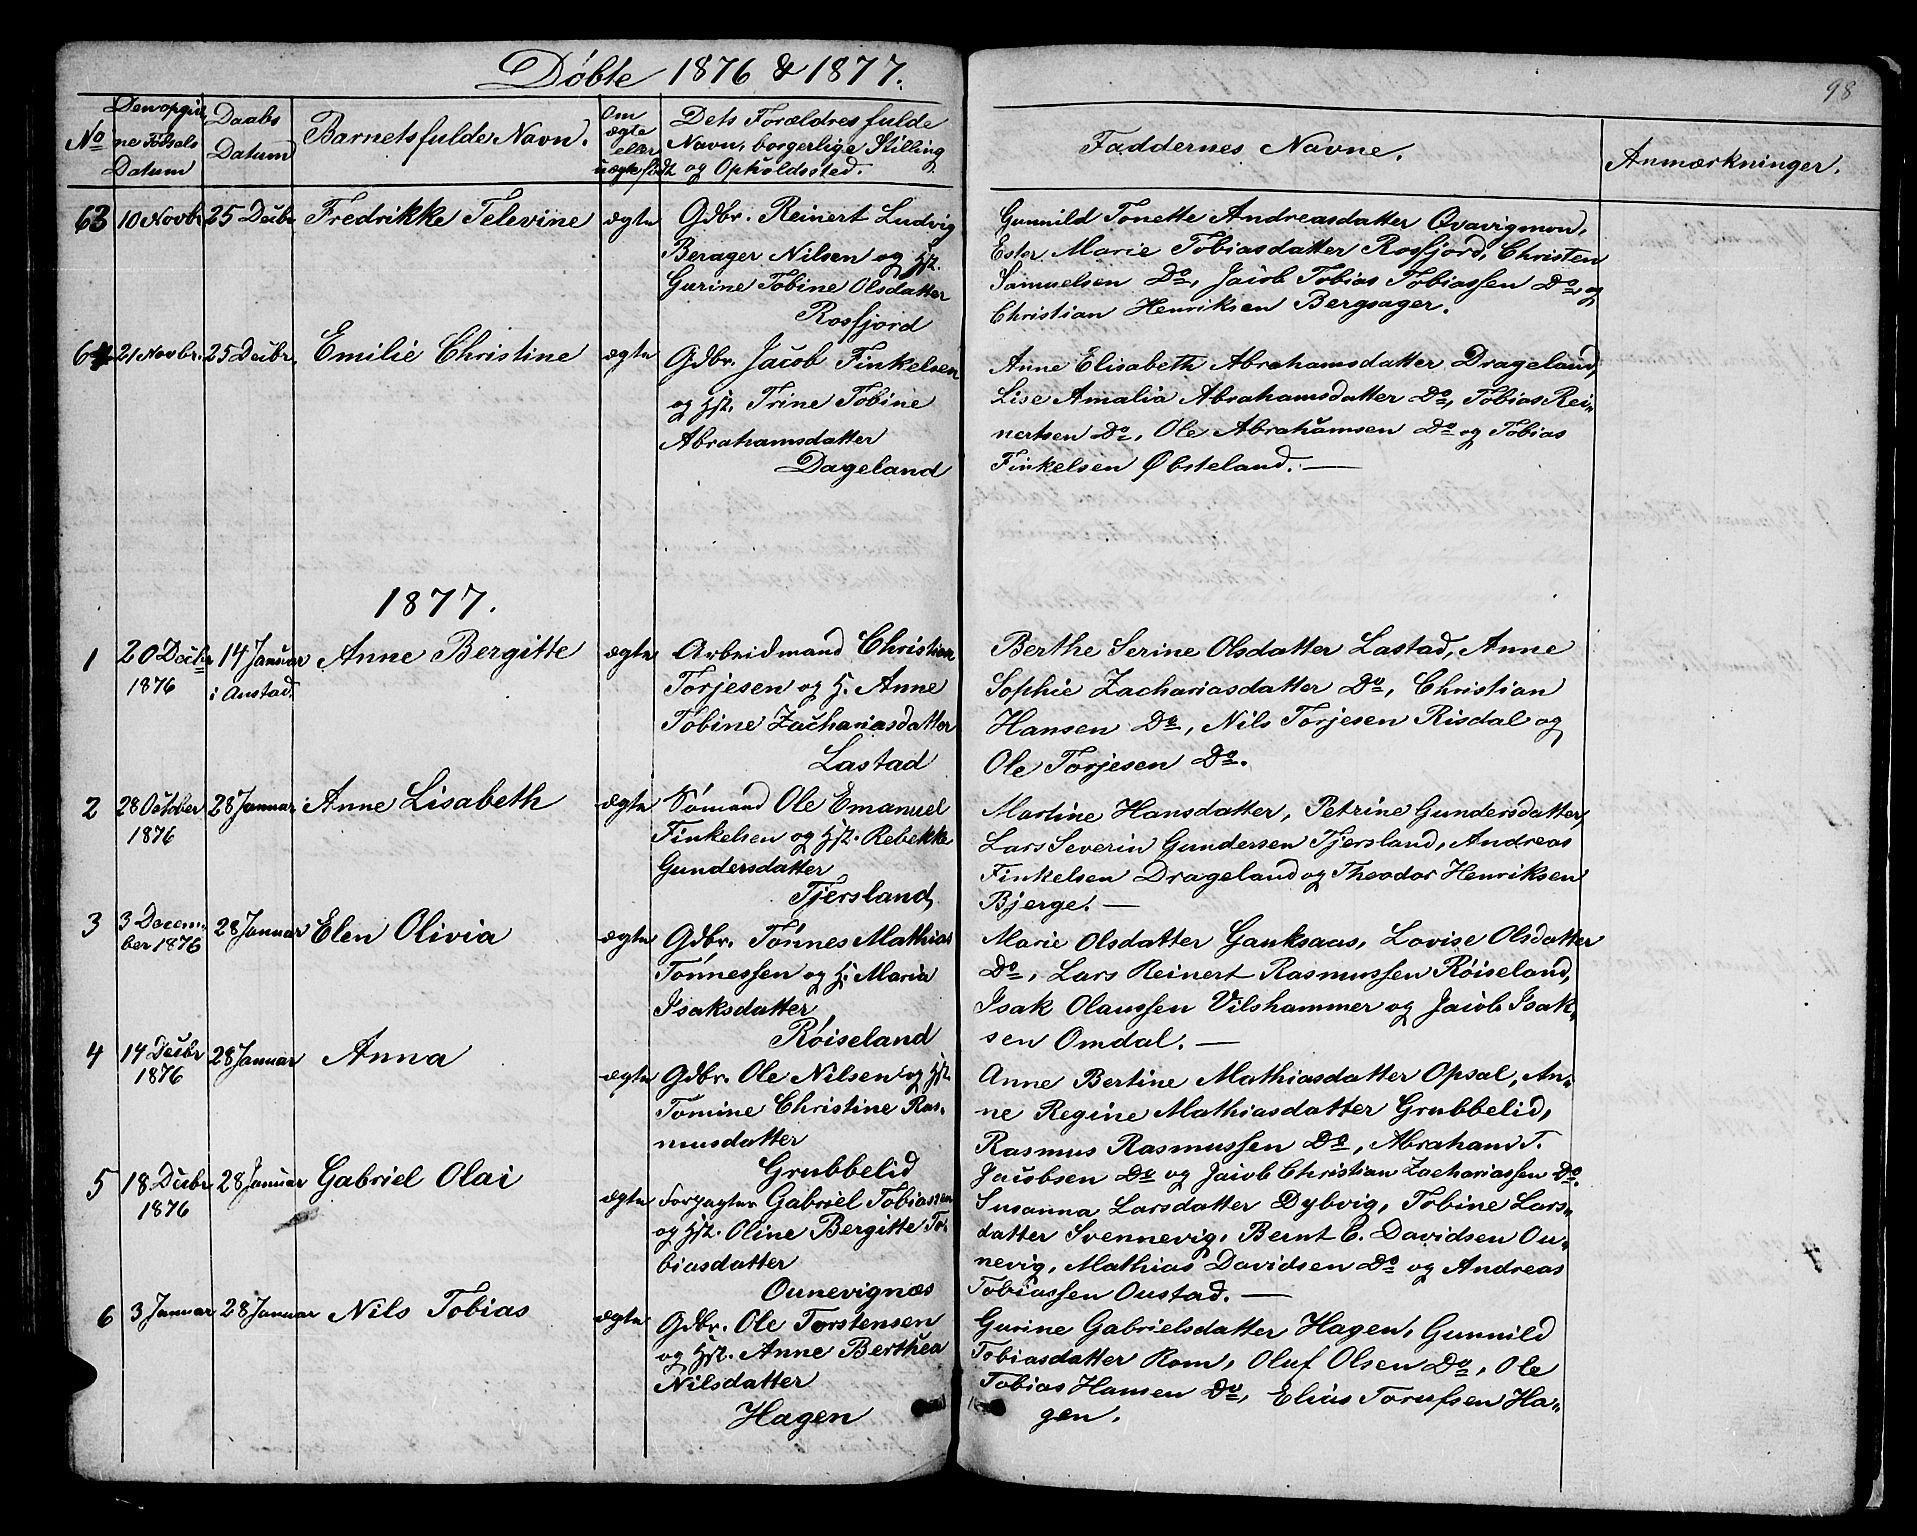 Döbte 1876 & 1877.
98
No
Den opgivne Födsels Datum
Daabs Datum
Barnets fulde Navn.
Om ægte eller uægte födt
Dets Forældres fulde Navn, borgerlige Stilling og Opholdssted.
Faddernes Navne.
Anmærkninger.
63 10 Novbr 25 Decbr Fredrikke Televine ægte
Gdbr. Reinert Ludvig
Berager Nilsen og Hst.
Gurine Tobine Olsdatter
Rosfjord
Gunnild Tonette Andreasdatter Qvavigmon,
Ester Marie Tobiasdatter Rosfjord, Christen
Samuelsen Do, Jacob Tobias Tobiassen Do, og
Christian Henriksen Bergsager.
64 21 Novbr. 25 Decbr. Emilie Christine ægte
Gdbr. Jacob Finkelsen
og Hst. Trine Tobine
Abrahamsdatter
Dageland
Anne Elisabeth Abrahamsdatter Drageland,
Lise Amalia Abrahamsdatter Do, Tobias Rei-
nertsen Do, Ole Abrahamsen Do og Tobias
Finkelsen Øbsteland. —
1877.
1 20 Decbr 1876 14 Januar i Austad. Anne Bergitte ægte
Arbeidmand Christian
Torjesen og H. Anne
Tobine Zachariasdatter
Lastad
Berthe Serine Olsdatter Lastad, Anne
Sophie Zachariasdatter Do, Christian
Hansen Do, Nils Torjesen Risdal og
Ole Torjesen Do.
2 28 October 1876 28 Januar Anne Lisabeth ægte
Sömand Ole Emanuel
Finkelsen og Hst. Rebekke
Gundersdatter
Tjersland,
Martine Hansdatter, Petrine Gundersdatter,
Lars Severin Gundersen Tjersland, Andreas
Finkelsen Drageland og Theodor Henriksen
Bjerge. —
3 3 Decem-ber 1876 28 Januar Elen Olivia ægte
Gdbr. Tönnes Mathias
Tönnessen og H. Maria
Isaksdatter
Röiseland
Marie Olsdatter Gauksaas, Lovise Olsdatter
Do, Lars Reinert Rasmussen Röiseland,
Isak Olaussen Vilshammer og Jacob Isak-
sen Omdal. —
4 14 Decbr 1876 28 Januar Anna ægte
Gdbr. Ole Nilsen og Hst
Tomine Christine Ras-
musdatter
Grubbelid
Anne Bertine Mathiasdatter Opsal, An-
ne Regine Mathiasdatter Grubbelid,
Rasmus Rasmussen Do, Abraham T.
Jacobsen Do og Jacob Christian Zachariassen Do.
5 18 Decbr 1876 28 Januar Gabriel Olai ægte
Forpagter Gabriel Tobiassen
og Hst. Oline Bergitte To-
biasdatter
Ounevignæs
Susanna Larsdatter Dybvig, Tobine Lars-
datter Svennevig, Bernt C. Davidsen Ou-
nevig, Mathias Davidsen Do og Andreas
Tobiassen Oustad. —
6 3 Januar 28 Januar Nils Tobias ægte
Gdbr. Ole Torstensen
og Hst. Anne Berthea
Nilsdatter
Hagen
Gurine Gabrielsdatter Hagen, Gunnild
Tobiasdatter Rom, Oluf Olsen Do, Ole
Tobias Hansen Do, Elias Torufsen Ha-
gen.